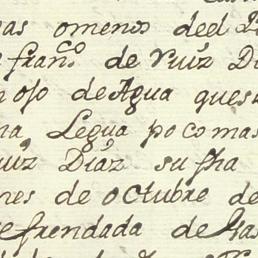 as omenos deel
franco de ruiz Di
ojo de Agua ques
na, Legua poco mas
uiz Diaz su fha
nes de octubre de
efrendada de Gas